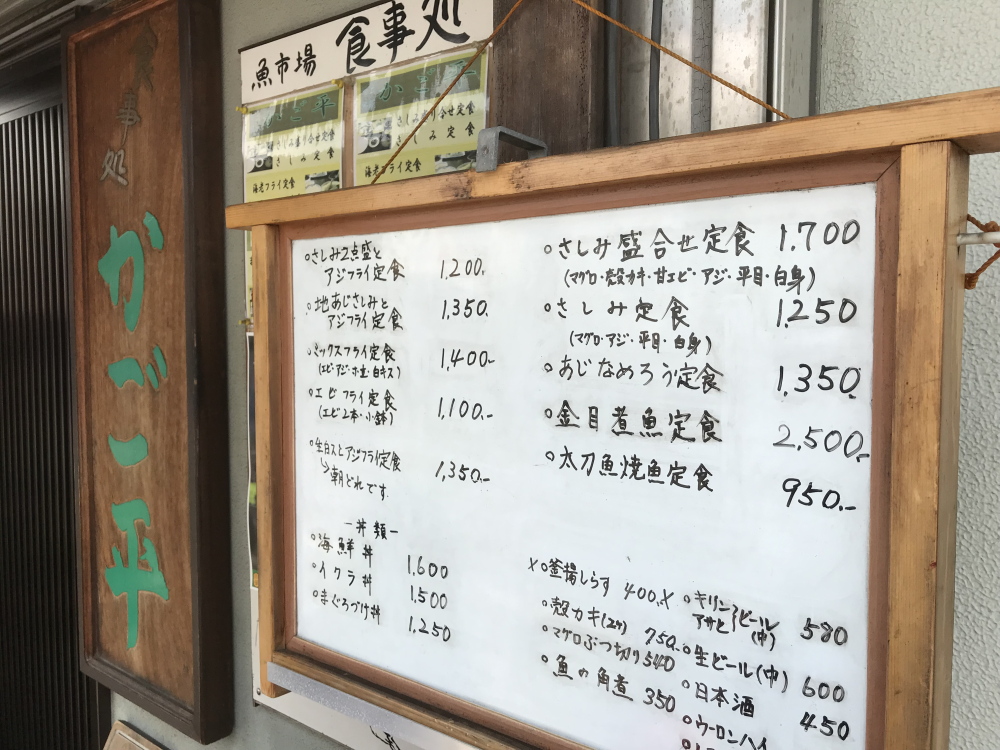 食事処
かご平
魚市場 食事処
かご平
さしみ盛り合せ定食
さしみ定食
海老フライ定食
かご平
さしみ盛り合せ定食
さしみ定食
海老フライ定食
○さしみ2点盛と
アジフライ定食 1,200.
○地あじさしみと
アジフライ定食 1,350.
○ミックスフライ定食 1,400-
(エビ・アジ・ホタテ・白キス)
○エビフライ定食 1,100.-
(エビ2本・小鉢)
○生白スとアジフライ定食 1,350.-
↳朝どれです
ー丼類ー
○海鮮丼 1,600
○イクラ丼 1,500
○まぐろづけ丼 1,250
○さしみ盛合せ定食 1,700
(マグロ・殻カキ・甘エビ・アジ・平目・白身)
○さしみ定食 1,250
(マグロ・アジ・平目・白身)
○あじなめろう定食 1,350.
○金目煮魚定食 2,500.-
○太刀魚焼魚定食 950.-
×○釜揚しらす 400.×
○殻カキ(2ケ) 750.
○マグロぶつ切り 540
○魚の角煮 350
○キリン
アサヒ}ビール(中) 580
○生ビール(中) 600
○日本酒 450
○ウーロンハイ